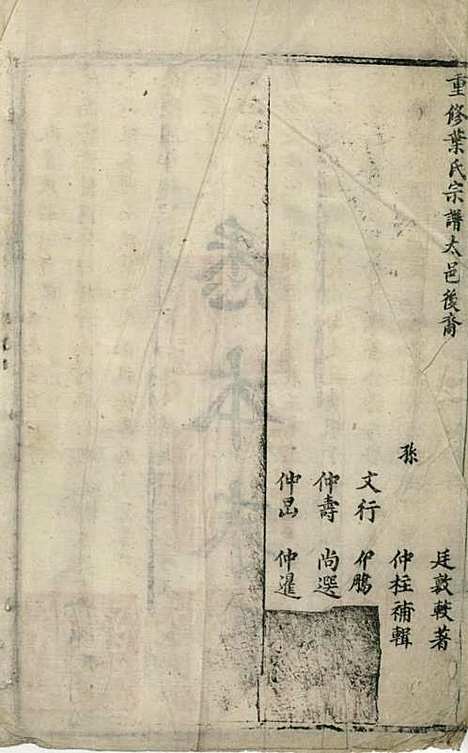 重修葉氏宗譜太邑後裔
廷敦輭著
孫 仲柱補輯
文行 仰鵬
仲壽 尚選
仲昆 仲暹